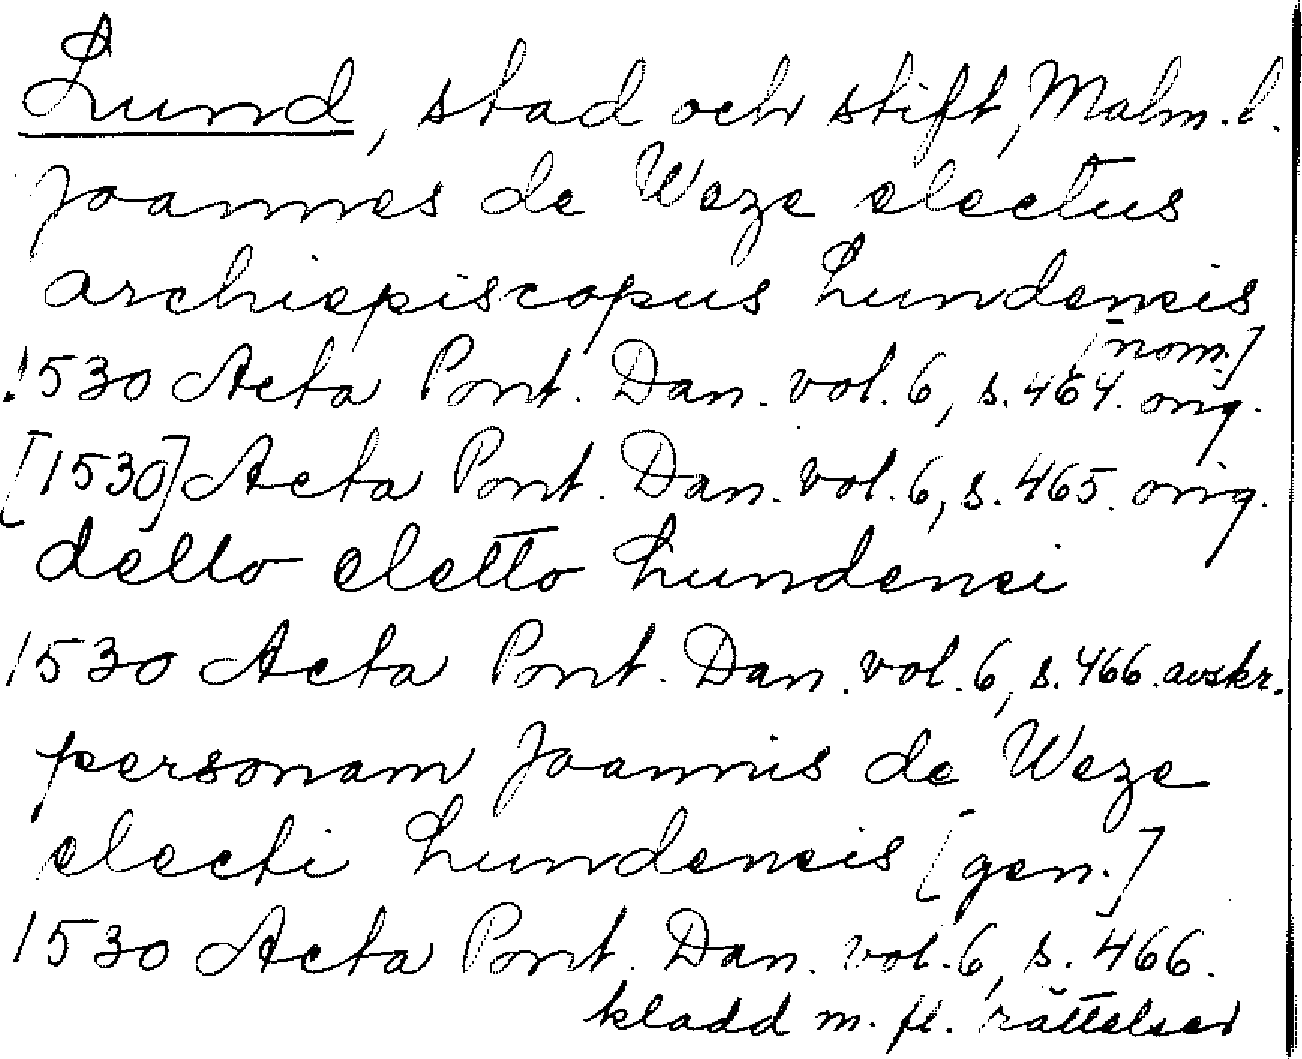 Lund, stad och stift, Malm. l.
Joannes de Weze electus
archiepiscopus Lundensis
[nom.]
1530 Acta Pont. Dan. vol. 6, s. 464. orig.
[1530] Acta Pont. Dan. vol. 6, s. 465. orig.
dello eletto Lundensi
1530 Acta Pont. Dan. vol. 6, s. 466. avskr.
personam Joannis de Weze
electi Lundensis [gen.]
1530 Acta Pont. Dan. vol. 6, s. 466.
kladd m. fl. rättelser